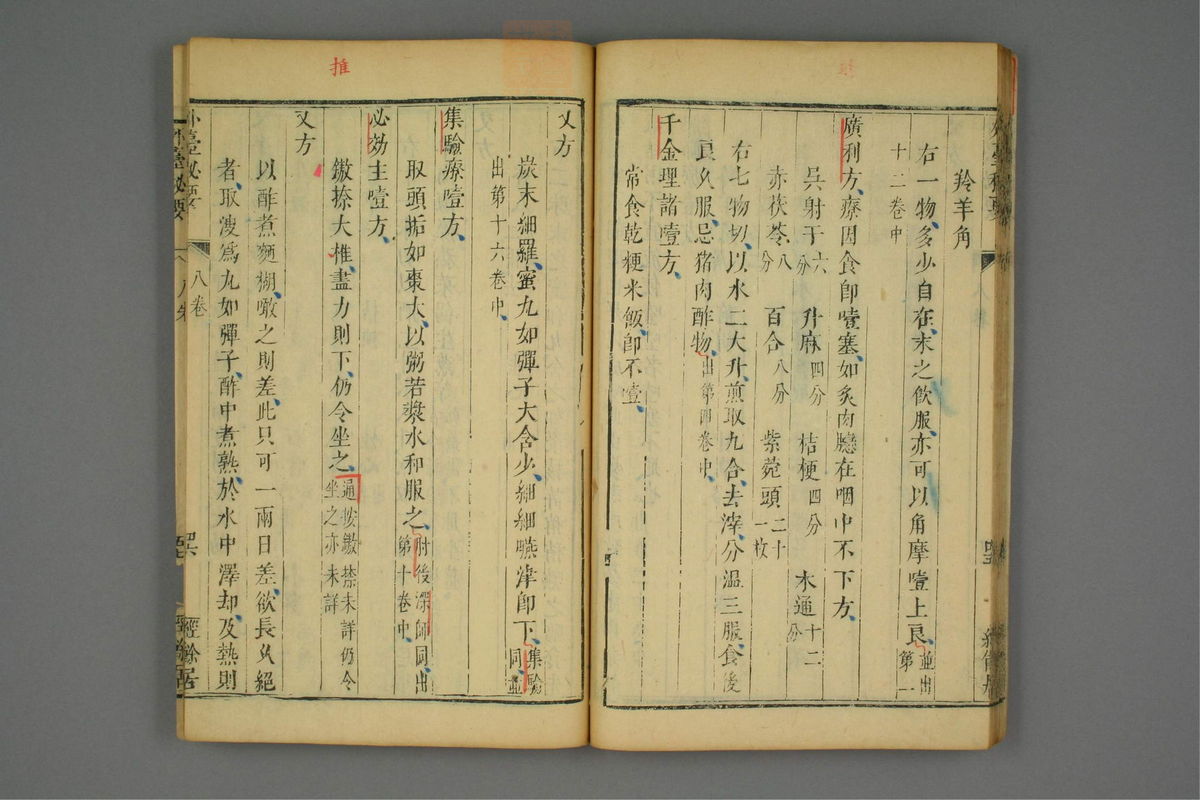 羚羊角
右一物多少自在末之飲服亦可以角摩噎上良並出第一
十二卷中
廣利方療因食卽噎塞如炙肉臠在咽中不下方
吳射干六分 升麻四分 桔梗四分 木通十二分
赤茯苓八分 百合八分 紫菀頭二十一枚
右七物切以水二大升煎取九合去滓分溫三服食後
良久服忌猪肉酢物出第四卷中
千金理諸噎方
常食乾粳米飯卽不噎
又方
炭末細羅蜜丸如彈子大含少細細嚥津卽下集驗同並
出第十六卷中
集驗療噎方
取頭垢如棗大以粥若漿水和服之肘後深師同出第十卷中
必効主噎方
鏾捺大椎盡力則下仍令坐之通按鏾捺未詳仍令坐之亦未詳
又方
以酢煮麵糊噉之則差此只可一兩日差欲長久絕
者取溲爲丸如彈子酢中煮熟於水中澤却及熱則
外臺秘要
八卷
四六
經餘居
推